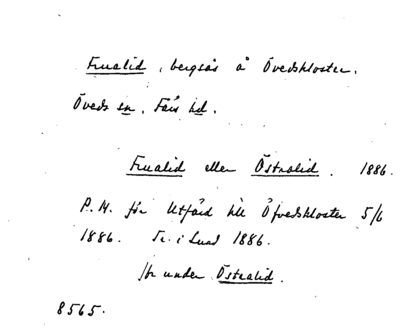 Frualid, bergsås å Övedskloster.
Öveds sn, Färs hd.
Frualid eller Östralid. 1886.
P.M. för Utfärd till Öfvedskloster 5/6
1886. Tr. i Lund 1886.
/br under Östralid.
8565.